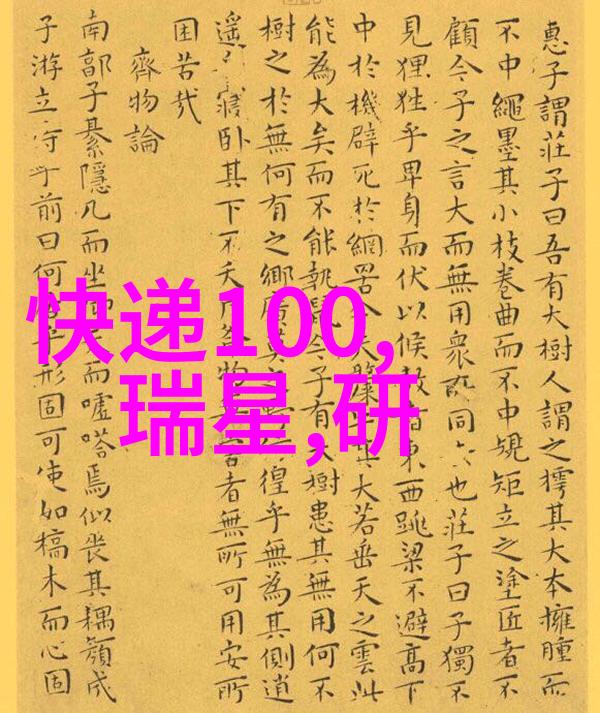 惠子謂莊子曰吾有大樹人謂之樗其大本擁腫而
不中繩墨其小枝卷曲而不中規矩立之塗匠者不
顧今子之言大而無用衆所同也莊子曰子獨不
見狸狌乎卑身而伏以候敖者東西跳梁不避高下
中於機辟死於網罟今夫其大若垂天之雲此
能為大矣而不能執鼠今子有大樹患其無用何不
樹之於無何有之鄉廣莫之徨乎無為其側逍
遥寢卧其下不夭斤物害者無所可用安所
困苦哉
齊物論
南郭子綦隱几而坐而噓嗒焉似喪其耦顏成
子游立侍乎前曰何乎形固可使如槁木而心固
快递100,
瑞星,研